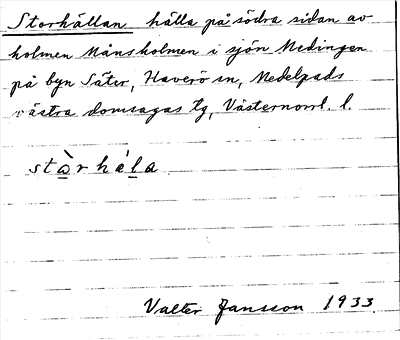 Storhällan hälla på södra sidan av
holmen Månsholmen i sjön Medingen
på byn Säter, Haverö sn, Medelpads
västra domsagas tg, Västernorrl. l.
stàrhála
Valter Jansson 1933